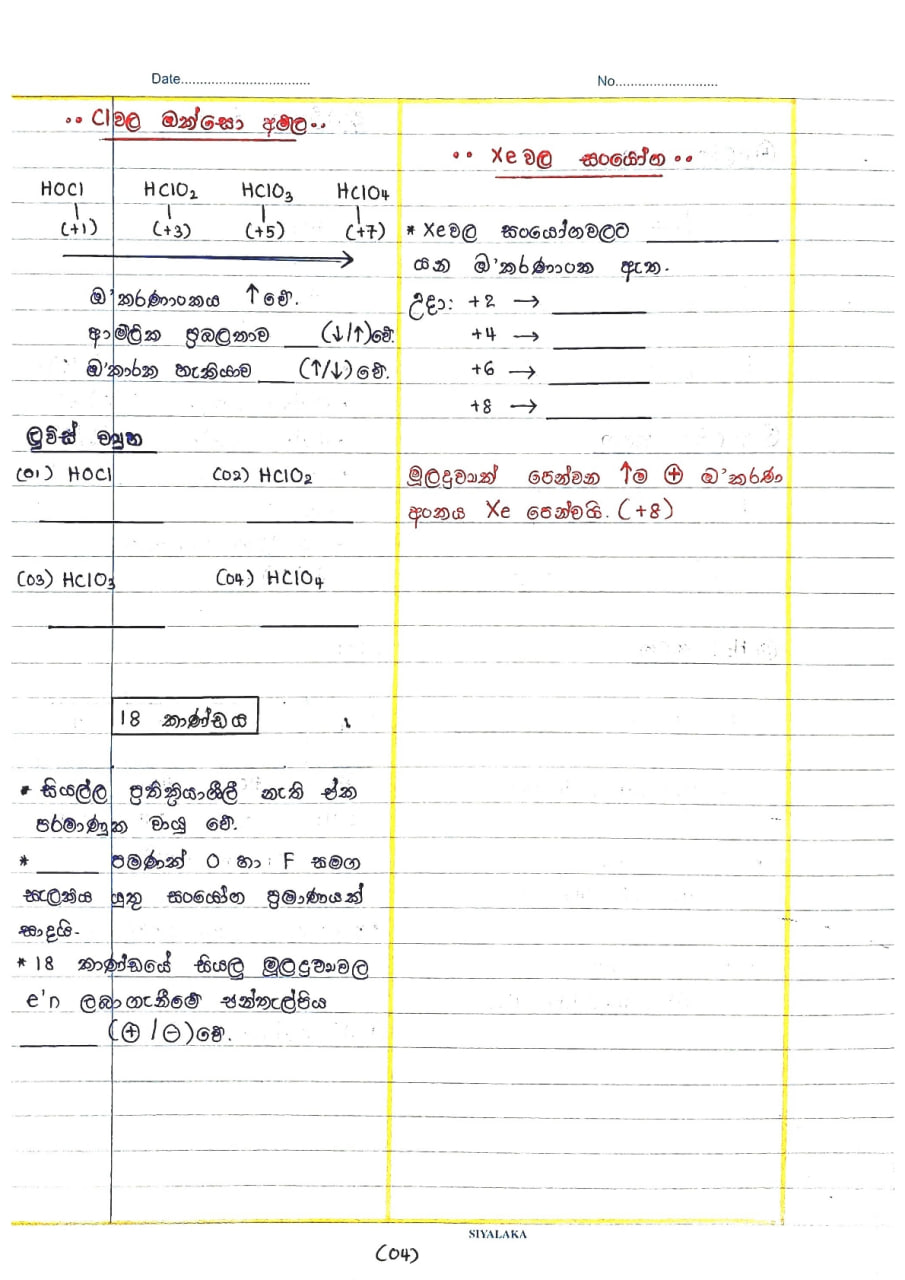 Date..................................
No...........................
•• Clවල ඔක්සො අම්ල ••
HOCl HClO2 HClO3 HClO4
(+1) (+3) (+5) (+7)
→
ඔ'කරණාංකය ↑ වේ.
ආම්ලික ප්‍රබලතාව ___ (↓/↑)වේ.
ඔ'කාරක හැකියාව ___ (↑/↓) වේ.
ලුවිස් ව්‍යුහ
(01) HOCl (02) HClO2
(03) HClO3 (04) HClO4
18 කාණ්ඩය
* සියල්ල ප්‍රතික්‍රියාශීලී නැති ඒක
පරමාණුක වායු වේ.
* ______ පමණක් O හා F සමග
සැලකිය යුතු සංයෝග ප්‍රමාණයක්
සාදයි.
* 18 කාණ්ඩයේ සියලු මූලද්‍රව්‍යවල
e'n ලබාගැනීමේ එන්තැල්පිය
________ (⊕ / ⊖)වේ.
•• Xe වල සංයෝග ••
* Xeවල සංයෝගවලට ____________
යන ඔ'කරණාංක ඇත.
උදා: +2 → _________
+4 → _________
+6 → _________
+8 → _________
මූලද්‍රව්‍යක් පෙන්වන ↑ම ⊕ ඔ'කරණ
අංකය Xe පෙන්වයි. (+8)
SIYALAKA
(04)